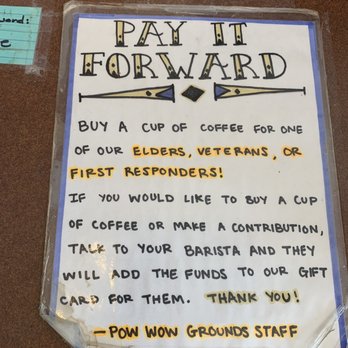 word:
PAY IT
FORWARD
BUY A CUP OF COFFEE FOR ONE
OF OUR ELDERS, VETERANS, OR
FIRST RESPONDERS!
IF YOU WOULD LIKE TO BUY A CUP
OF COFFEE OR MAKE A CONTRIBUTION,
TALK TO YOUR BARISTA AND THEY
WILL ADD THE FUNDS TO OUR GIFT
CARD FOR THEM. THANK YOU!
—POW WOW GROUNDS STAFF